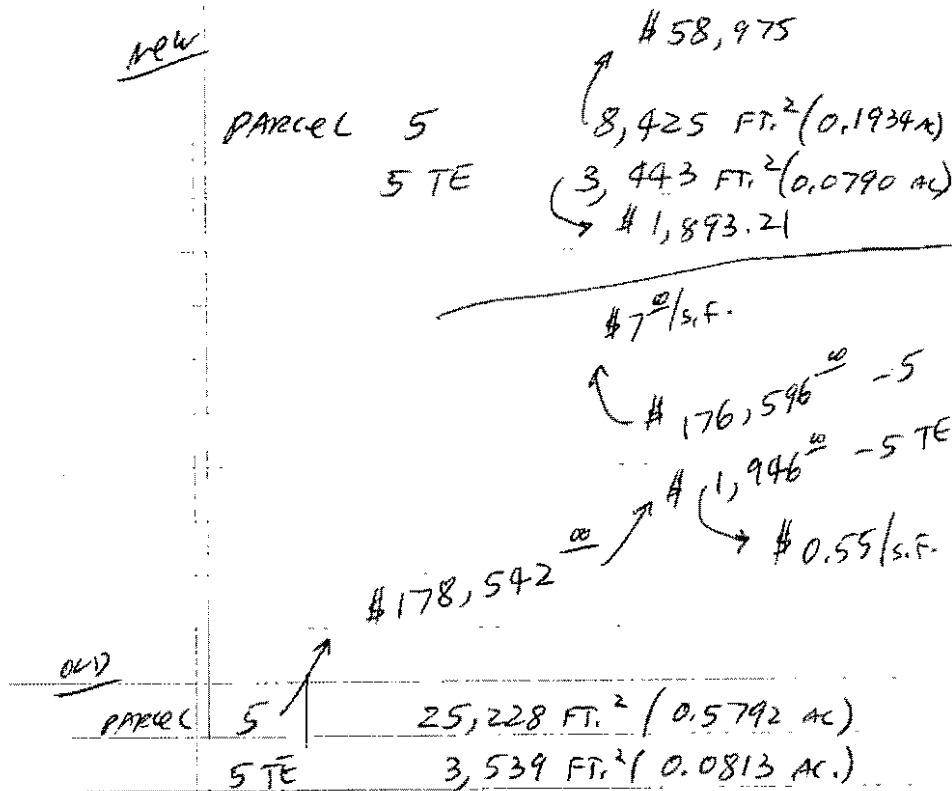 $58,975
New
PARCEL 5 8,425 FT.² (0.1934 AC)
5 TE 3,443 FT.² (0.0790 AC)
$1,893.21
$7.00/S.F.
$176,596.00 - 5
$1,946.00 - 5 TE
$0.55/S.F.
$178,542.00
OLD
PARCEL 5 25,228 FT.² (0.5792 AC)
5 TE 3,539 FT.² (0.0813 AC.)